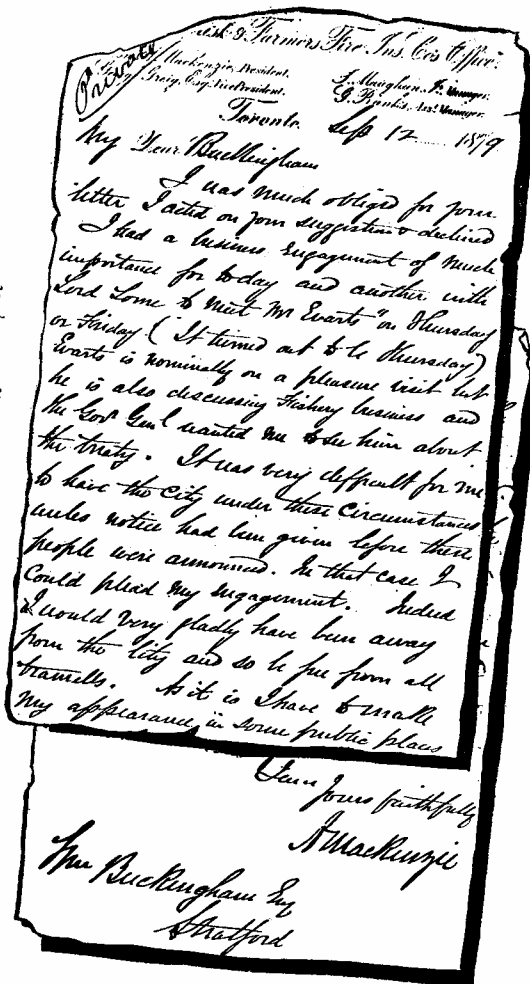 Private
& Farmers Fire Ins. Co's Office.
Mackenzie, President.
Greig, Esq. Vice President.
Maughan, Jr. Manager.
G. Banks, Ass't Manager.
Toronto Sep 12 1879
My Dear Buckingham
I was much obliged for your
letter I acted on your suggestion & declined
I had a business engagement of much
importance for today and another with
Lord Lorne to meet Mr Evarts on Thursday
or Friday (It turned out to be Thursday)
Evarts is nominally on a pleasure visit but
he is also discussing Fishery business and
the Govr Genl wanted me to see him about
the treaty. It was very difficult for me
to have the city under these circumstances
unles notice had been given before these
people were announced. In that case I
could plead my engagement. Indeed
I would very gladly have been away
from the city and so be free from all
tramells. As it is I have to make
my appearance in some public places
Yours faithfully
A Mackenzie
Wm Buckingham Esq
Stratford